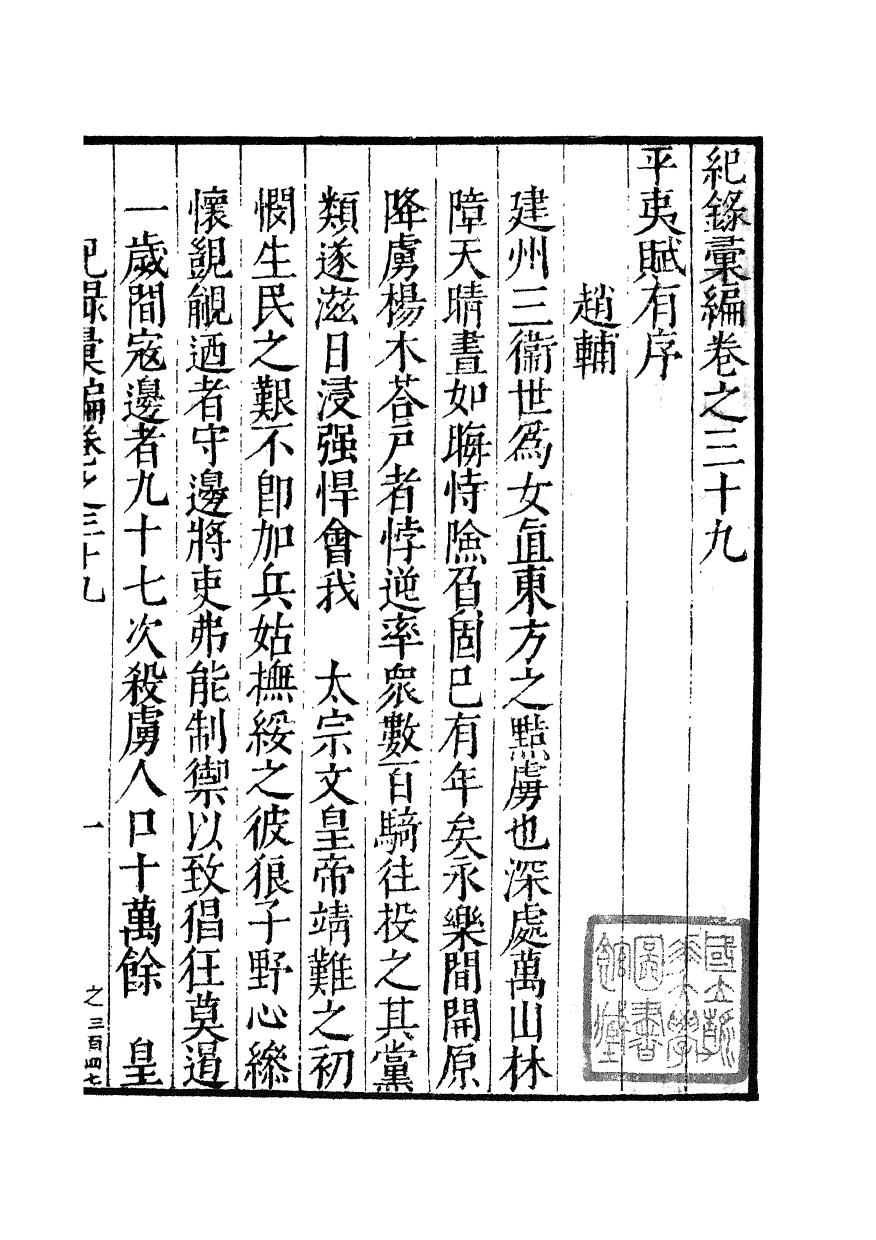 紀錄彙編卷之三十九
平夷賦有序
趙輔
建州三衞世爲女直東方之黠虜也深處萬山林
障天晴晝如晦恃險負固已有年矣永樂間開原
降虜楊木荅戸者悖逆率衆數百騎往投之其黨
類遂滋日浸强悍會我　太宗文皇帝靖難之初
憫生民之艱不卽加兵姑撫綏之彼狼子野心縧
懷覬覦迺者守邊將吏弗能制禦以致猖狂莫遏
一歲間寇邊者九十七次殺虜人口十萬餘　皇
紀錄彙編卷之三十九　一　之三百四七
國立
大學
圖書
館藏